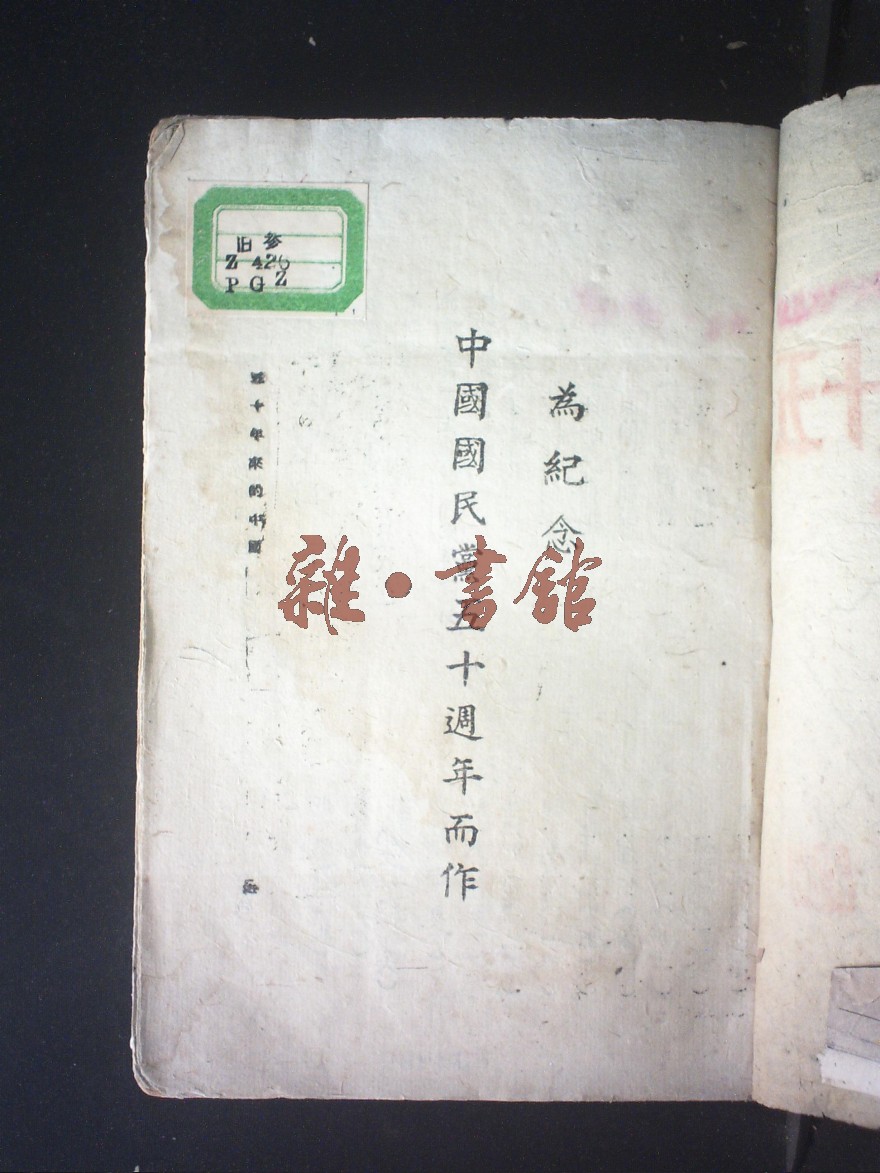 旧参
Z 426
P G Z
為紀念
中國國民黨五十週年而作
五十年來的中國
雜·書館
十五